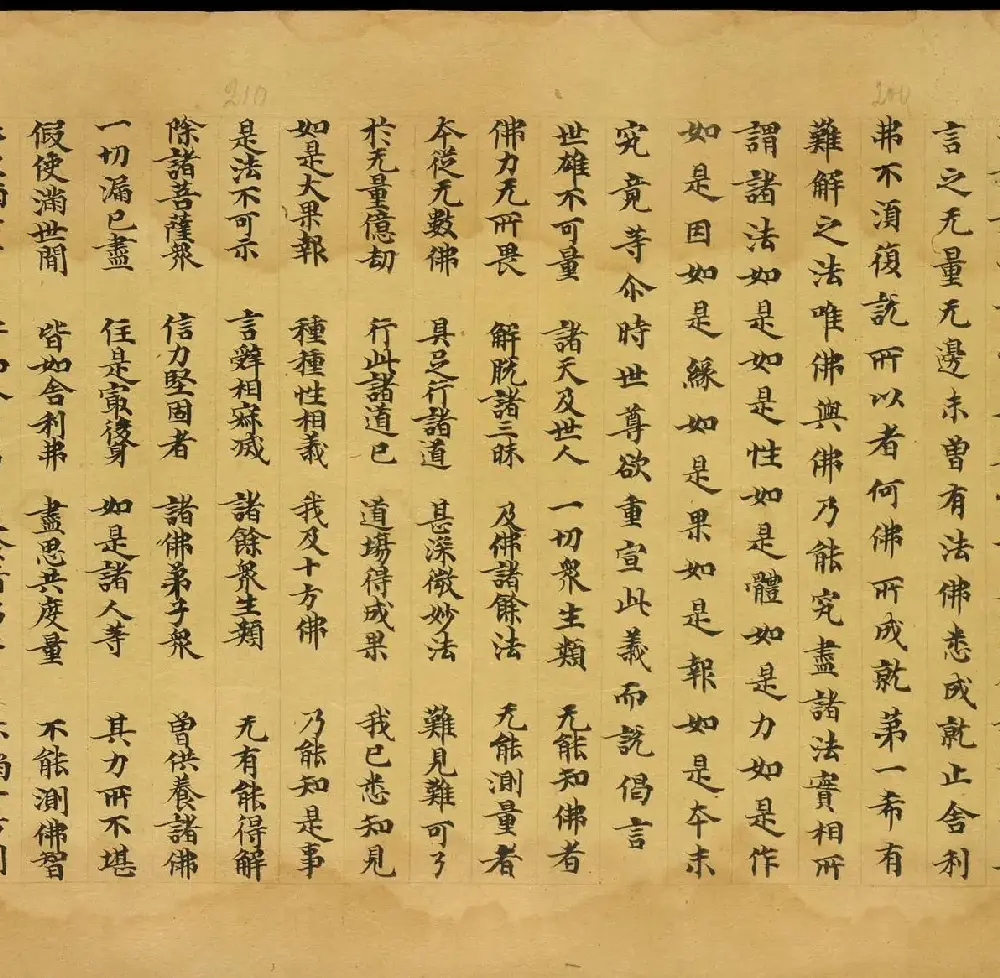 200
210
言之无量无邊未曽有法佛悉成就止舎利
弗不湏復説所以者何佛所成就第一希有
難解之法唯佛與佛乃能究盡諸法實相所
謂諸法如是如是性如是體如是力如是作
如是因如是緣如是果如是報如是夲末
究竟等尒時世尊欲重宣此義而説偈言
世雄不可量 諸天及世人 一切衆生類 无能知佛者
佛力无所畏 解脱諸三昧 及佛諸餘法 无能測量者
夲從无數佛 具足行諸道 甚深微妙法 難見難可了
於无量億劫 行此諸道已 道場得成果 我已悉知見
如是大果報 種種性相義 我及十方佛 乃能知是事
是法不可示 言辭相寂滅 諸餘衆生類 无有能得解
除諸菩薩衆 信力堅固者 諸佛弟子衆 曽供養諸佛
一切漏已盡 住是㝡後身 如是諸人等 其力所不堪
假使滿世間 皆如舎利弗 盡思共度量 不能測佛智